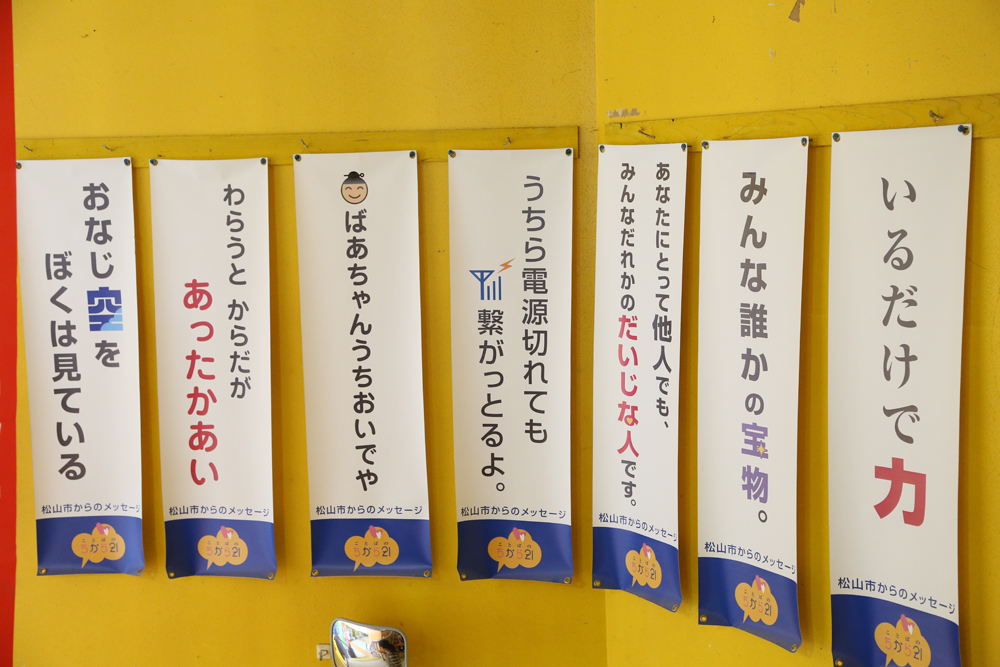 おなじ空を
ぼくは見ている
松山市からのメッセージ
ことばの
ちから21
わらうと からだが
あったかあい
松山市からのメッセージ
ことばの
ちから21
ばあちゃんうちおいでや
松山市からのメッセージ
ことばの
ちから21
うちら電源切れても
繋がっとるよ。
松山市からのメッセージ
ことばの
ちから21
あなたにとって他人でも、
みんなだれかのだいじな人です。
松山市からのメッセージ
ことばの
ちから21
みんな誰かの宝物。
松山市からのメッセージ
ことばの
ちから21
いるだけで力
松山市からのメッセージ
ことばの
ちから21